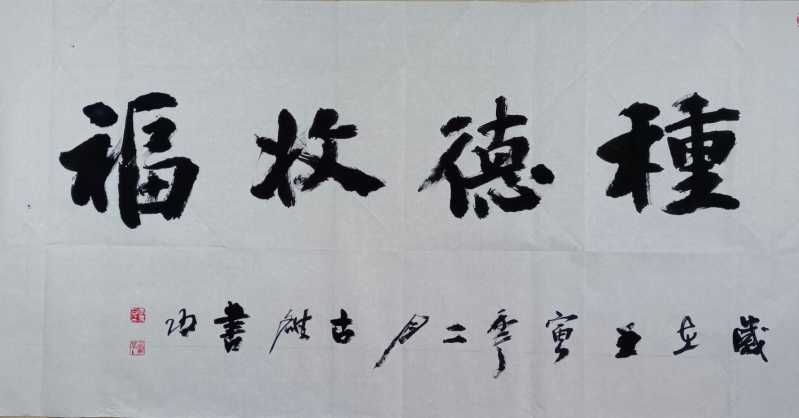 種德收福
歲在壬寅季二月古雒書功